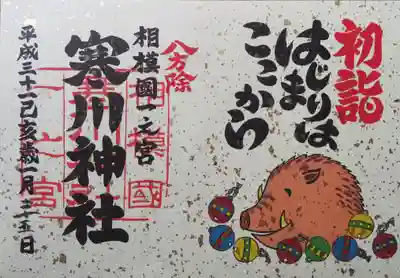 初詣
はじまりは
ここから
八方除
相模國一之宮
寒川神社
平成三十一己亥歳一月二十五日
相模國
一之宮